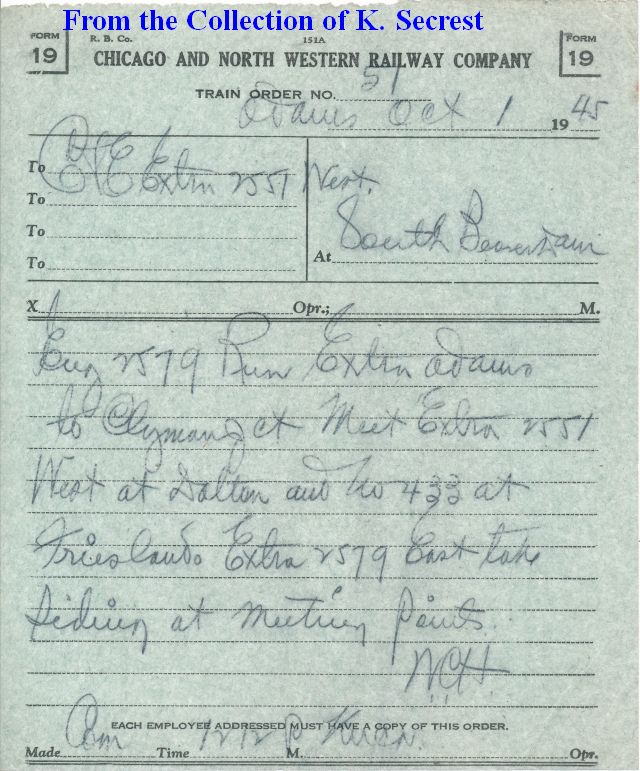 From the Collection of K. Secrest
FORM 19
R. B. Co. 151A
FORM 19
CHICAGO AND NORTH WESTERN RAILWAY COMPANY
TRAIN ORDER NO. 51
Adams Oct 1 1945
To C&E Extra 2551 West.
To
To
To
At South Beaver Dam
X Opr.; M.
Eng 2579 Run Extra Adams
to Clyman Jct Meet Extra 2551
West at Dalton and No 433 at
Friesland Extra 2579 East take
siding at meeting points.
WCH
EACH EMPLOYEE ADDRESSED MUST HAVE A COPY OF THIS ORDER.
Made Com Time 1212 P M. Opr.